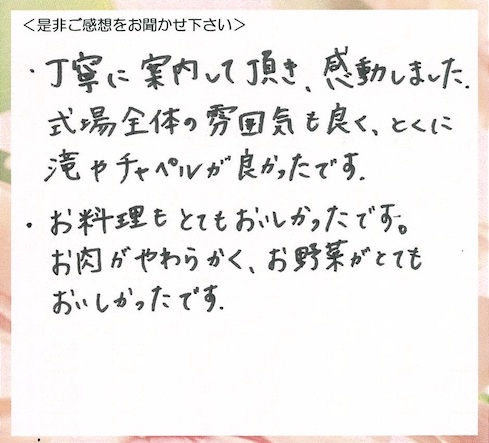 ＜是非ご感想をお聞かせ下さい＞
・丁寧に案内して頂き、感動しました.
式場全体の雰囲気も良く、とくに
滝やチャペルが良かったです.
・お料理もとてもおいしかったです。
お肉がやわらかく、お野菜がとても
おいしかったです.